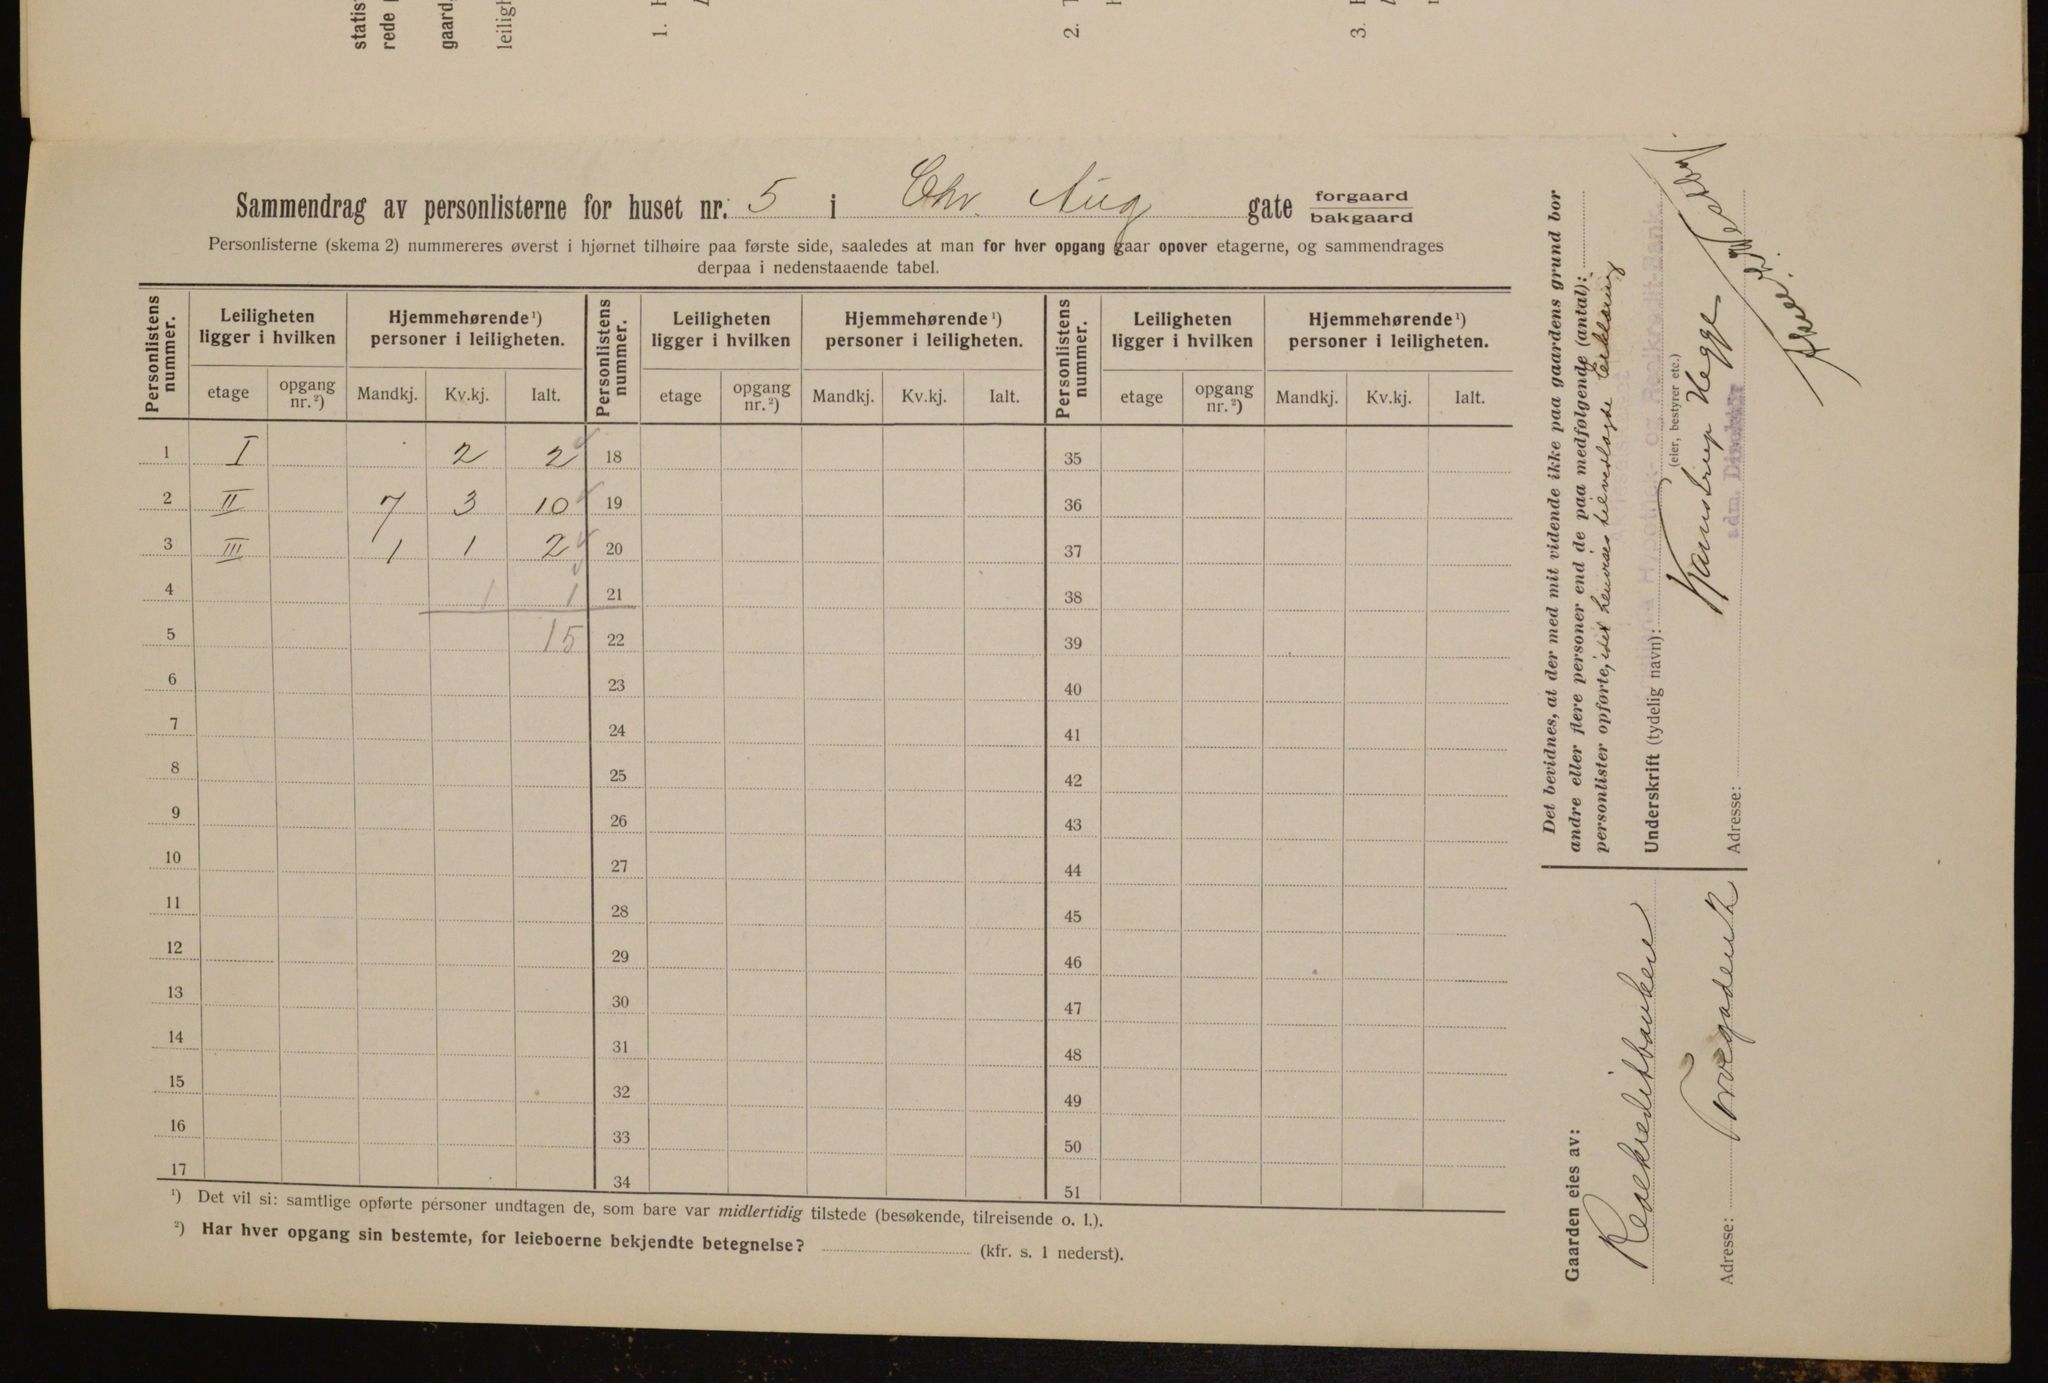 statis
rede
gaard
leiligh
1.
2.
3.
Sammendrag av personlisterne for huset nr. 5 i Chr. Aug gate forgaard
bakgaard
Personlisterne (skema 2) nummereres øverst i hjørnet tilhøire paa første side, saaledes at man for hver opgang gaar opover etagerne, og sammendrages
derpaa i nedenstaaende tabel.
Personlistens nummer. Leiligheten ligger i hvilken Hjemmehørende ¹) personer i leiligheten. Personlistens nummer. Leiligheten ligger i hvilken Hjemmehørende ¹) personer i leiligheten. Personlistens nummer. Leiligheten ligger i hvilken Hjemmehørende ¹) personer i leiligheten.
etage opgang nr. ²) Mandkj. Kv.kj. Ialt. etage opgang nr. ²) Mandkj. Kv.kj. Ialt. etage opgang nr. ²) Mandkj. Kv.kj. Ialt.
1 I 2 2 18 35
2 II 7 3 10 19 36
3 III 1 1 2 20 37
4 1 1 21 38
5 15 22 39
6 23 40
7 24 41
8 25 42
9 26 43
10 27 44
11 28 45
12 29 46
13 30 47
14 31 48
15 32 49
16 33 50
17 34 51
¹) Det vil si: samtlige opførte personer undtagen de, som bare var midlertidig tilstede (besøkende, tilreisende o. l.).
²) Har hver opgang sin bestemte, for leieboerne bekjendte betegnelse? (kfr. s. 1 nederst).
Det bevidnes, at der med mit vidende ikke paa gaardens grund bor
andre eller flere personer end de paa medfølgende (antal):
personlister opførte, idet henvises til vedlagte Erklæring
Underskrift (tydelig navn):
(eier, bestyrer etc.)
Kamstrup Hegge
adm. Direktør
Adresse:
Gaarden eies av:
Realkreditbanken
Adresse: Torvegaden 12